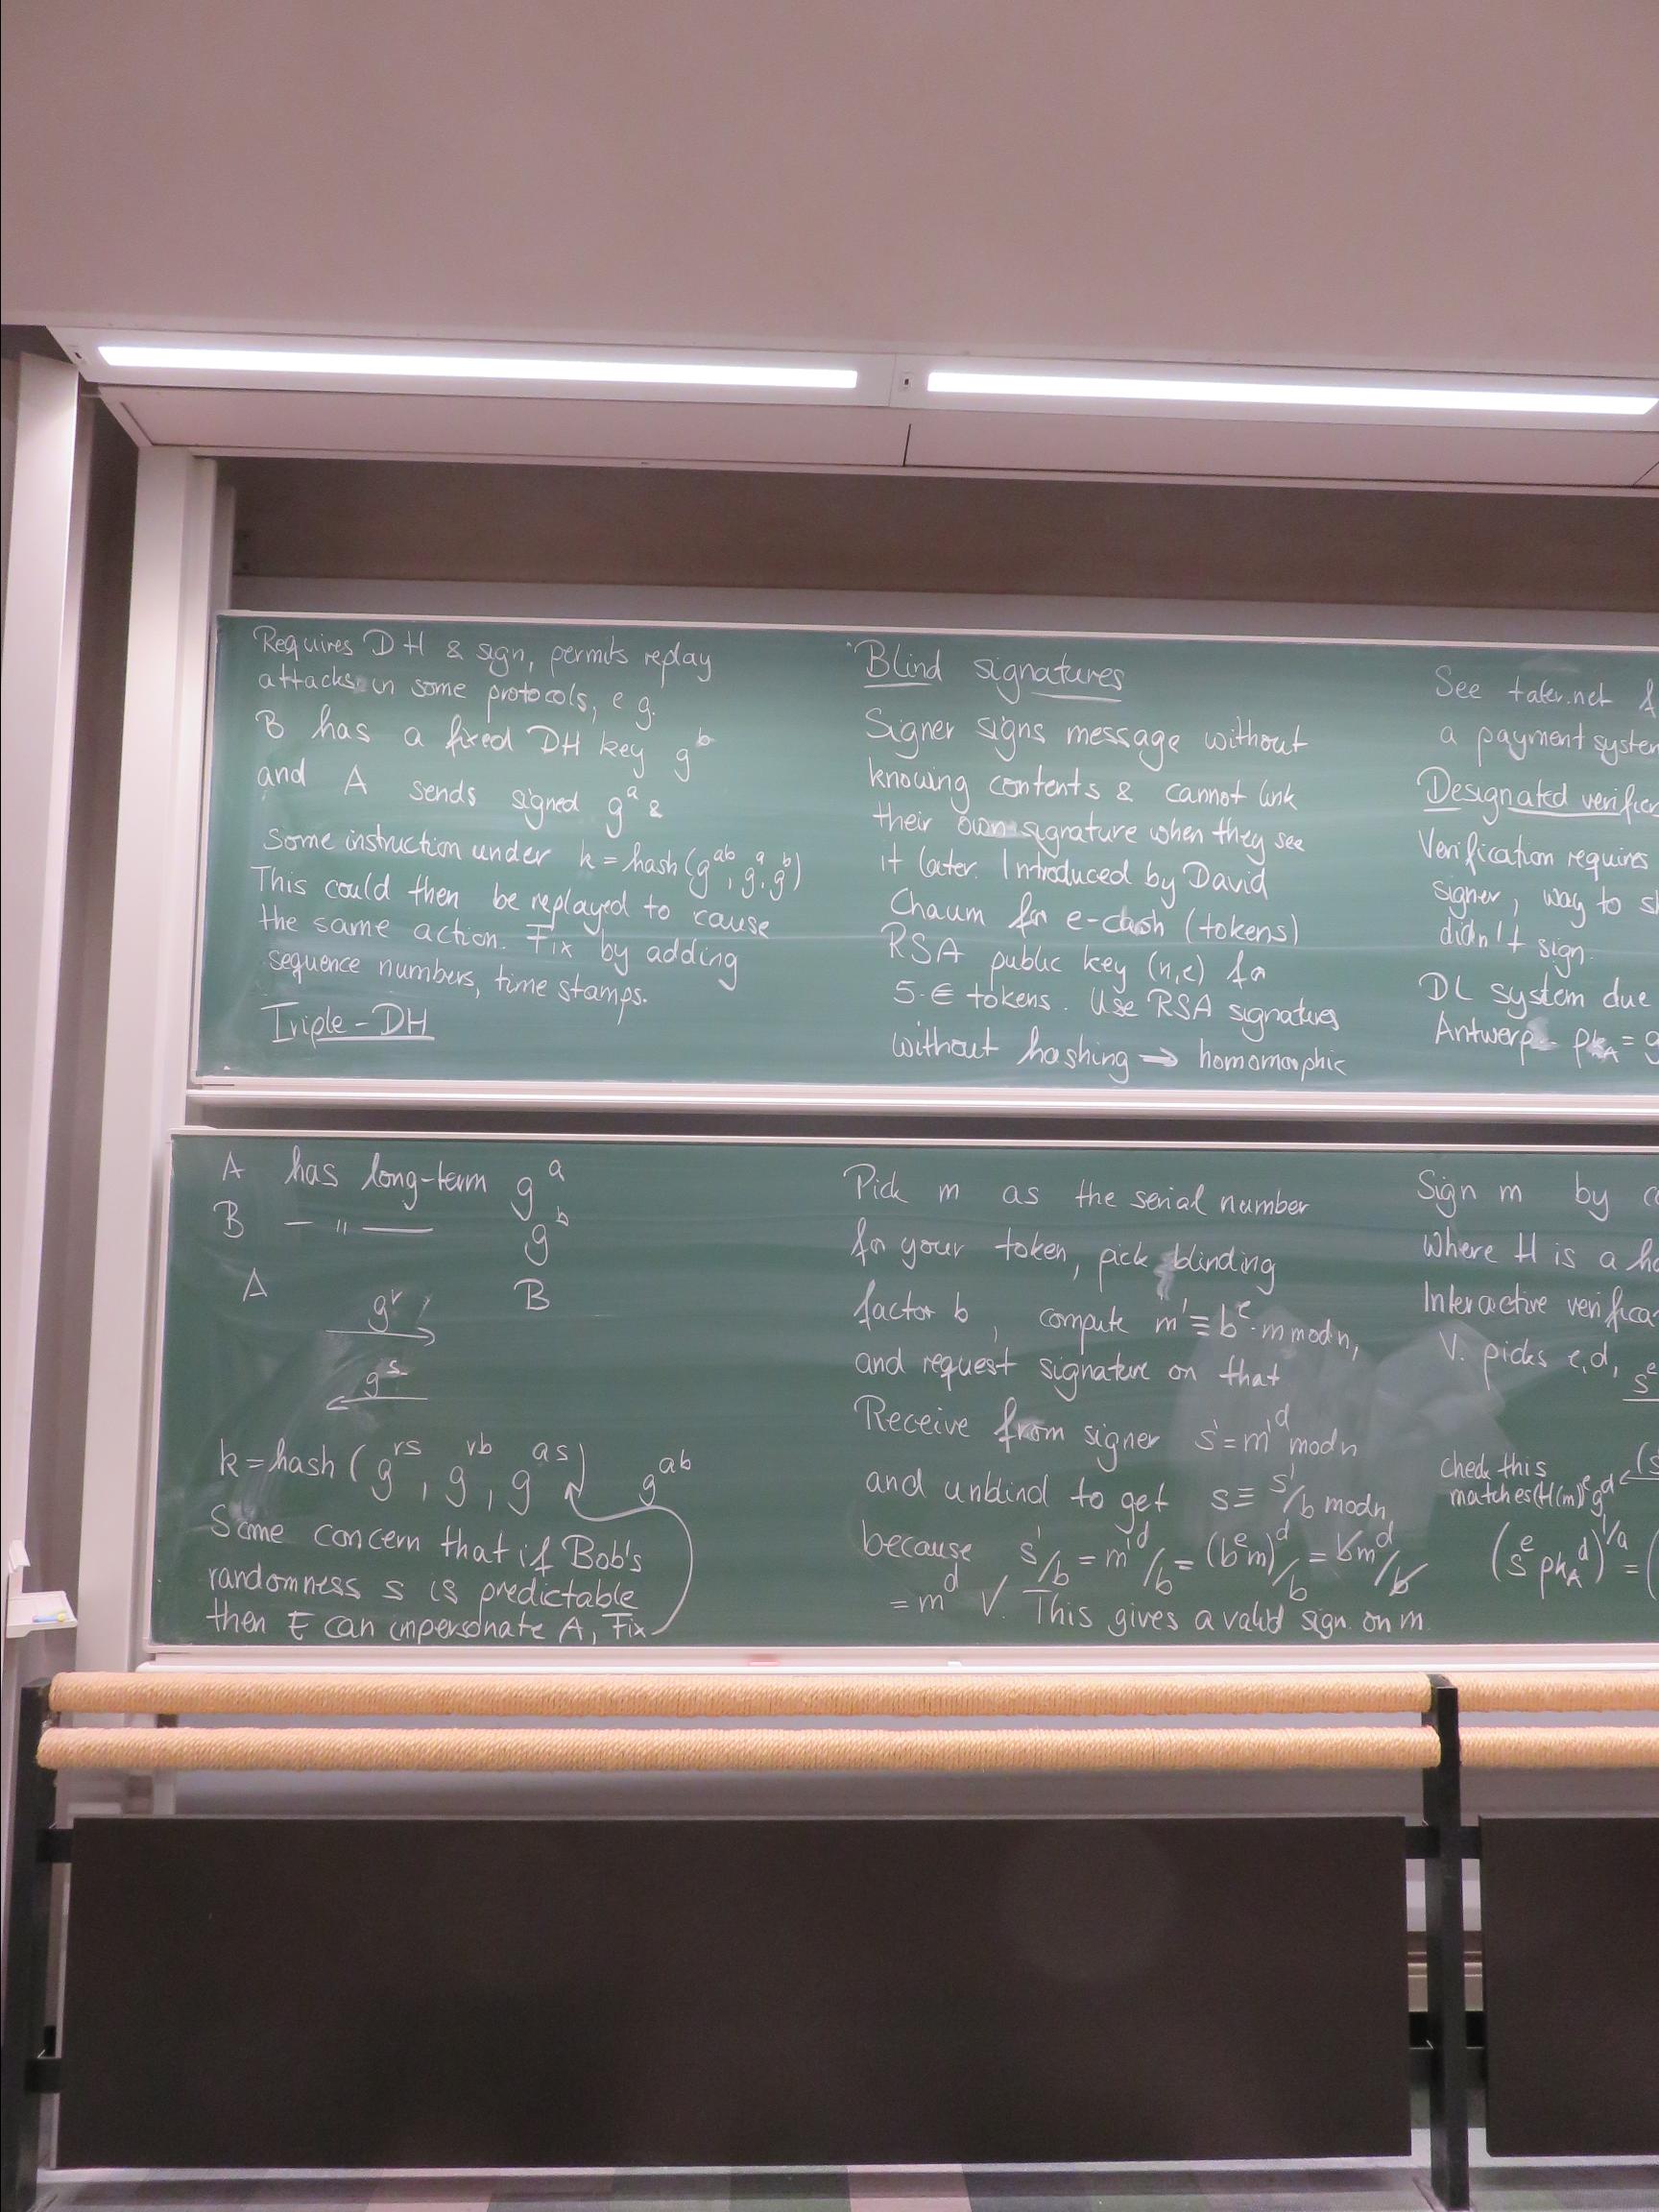 Requires DH & sign, permits replay
attacks in some protocols, e g.
B has a fixed DH key g^b
and A sends signed g^a &
some instruction under k = hash(g^ab, g^a, g^b)
This could then be replayed to cause
the same action. Fix by adding
sequence numbers, time stamps.
Triple-DH
A has long-term g^a
B — " — g^b
A B
g^r
g^s
k = hash (g^rs, g^rb, g^as) g^ab
Some concern that if Bob's
randomness s is predictable
then E can impersonate A, Fix
Blind signatures
Signer signs message without
knowing contents & cannot link
their own signature when they see
it later. Introduced by David
Chaum for e-cash (tokens)
RSA public key (n,e) for
5.€ tokens. Use RSA signatures
without hashing → homomorphic
Pick m as the serial number
for your token, pick blinding
factor b, compute m' ≡ b^e·m mod n,
and request signature on that
Receive from signer s' = m'^d mod n
and unblind to get s ≡ s'/b mod n,
because s'/b = m'^d/b = (b^e m)^d/b = bm^d/b
= m^d √. This gives a valid sign. on m.
See taler.net
a payment system
Designated verifier
Verification requires
signer, way to
didn't sign.
DL system due
Antwerp pk_A = g
Sign m by
Where H is a
Interactive
V. picks e,d, s^e
check this
matches (H(m))^e g^d ← (s
(s^e pk_A^d)^1/a = (